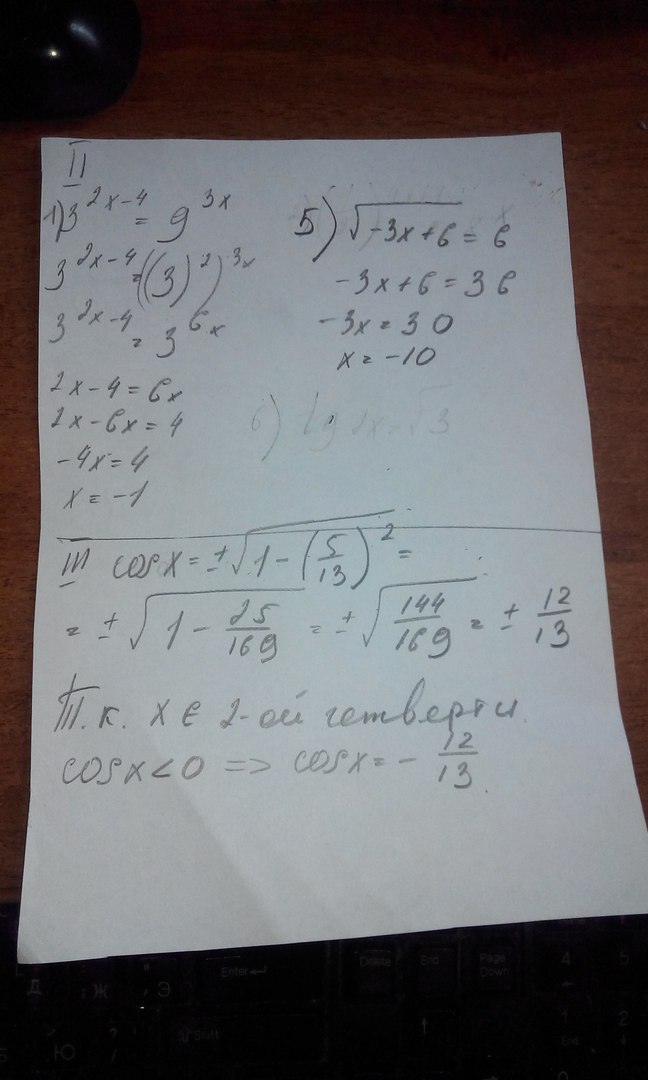 II
1) 3^{2x-4} = 9^{3x}
3^{2x-4} = ((3)^2)^{3x}
3^{2x-4} = 3^{6x}
2x-4=6x
2x-6x=4
-4x=4
x=-1
5) √(-3x+6) = 6
-3x+6=36
-3x=30
x=-10
6) tg 2x=√3
III cosx=±√(1-(5/13)^2) =
= ±√(1-25/169) = ±√(144/169) = ± 12/13
Т.к. x ∈ 2-ой четверти
cosx<0 => cosx=- 12/13
Enter
Delete
End
Page Down
Shift
Д
Ж
Э
Ю
4
5
1
End
2